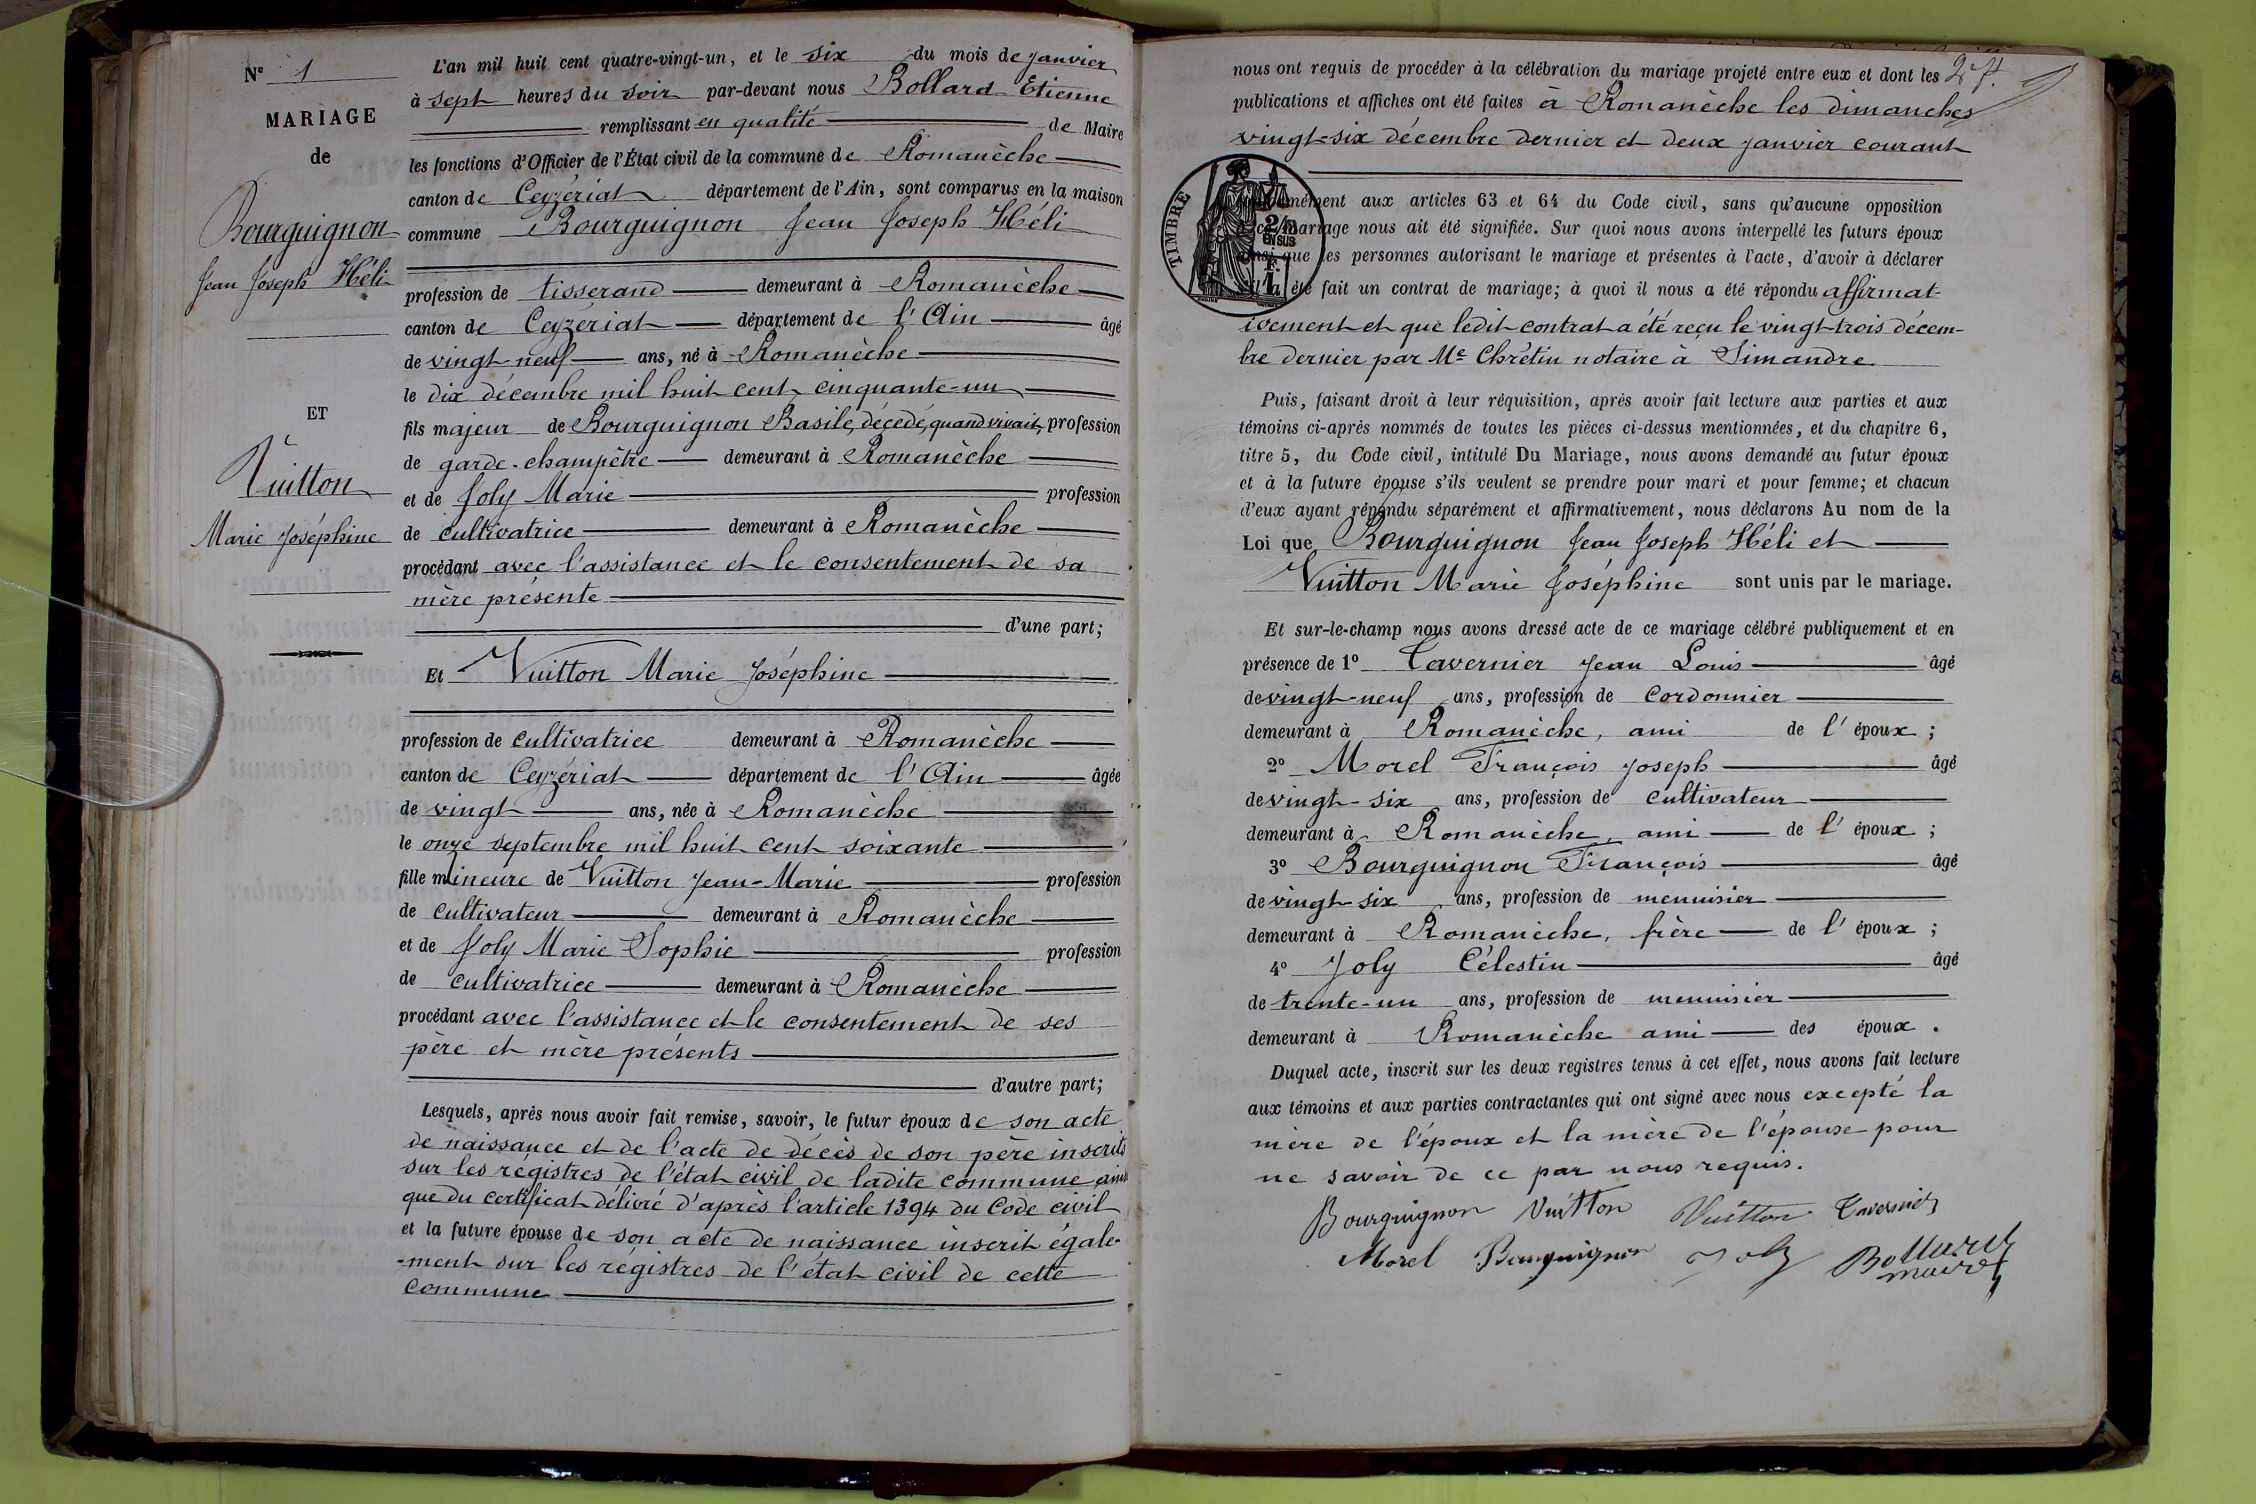 N° 1
MARIAGE
de
Bourguignon
Jean Joseph Héli
ET
Vuitton
Marie Joséphine
L'an mil huit cent quatre-vingt-un, et le six du mois de janvier
à sept heures du soir par-devant nous Bollard Etienne
remplissant en qualité de Maire
les fonctions d'Officier de l'État civil de la commune de Romanèche
canton de Ceyzériat département de l'Ain, sont comparus en la maison
commune Bourguignon Jean Joseph Héli
profession de tisserand demeurant à Romanèche
canton de Ceyzériat département de l'Ain âgé
de vingt-neuf ans, né à Romanèche
le dix décembre mil huit cent cinquante-un
fils majeur de Bourguignon Basile, décédé, quand vivait, profession
de garde-champêtre demeurant à Romanèche
et de Joly Marie profession
de cultivatrice demeurant à Romanèche
procédant avec l'assistance et le consentement de sa
mère présente
d'une part;
Et Vuitton Marie Joséphine
profession de cultivatrice demeurant à Romanèche
canton de Ceyzériat département de l'Ain âgée
de vingt ans, née à Romanèche
le onze septembre mil huit cent soixante
fille mineure de Vuitton Jean-Marie profession
de cultivateur demeurant à Romanèche
et de Joly Marie Sophie profession
de cultivatrice demeurant à Romanèche
procédant avec l'assistance et le consentement de ses
père et mère présents
d'autre part;
Lesquels, après nous avoir fait remise, savoir, le futur époux de son acte
de naissance et de l'acte de décès de son père inscrits
sur les régistres de l'état civil de ladite commune ainsi
que du certificat délivré d'après l'article 1394 du Code civil
et la future épouse de son acte de naissance inscrit égale-
-ment sur les régistres de l'état civil de cette
commune
nous ont requis de procéder à la célébration du mariage projeté entre eux et dont les
publications et affiches ont été faites à Romanèche les dimanches
vingt-six décembre dernier et deux janvier courant
TIMBRE
2/10
EN SUS
1 F.
conformément aux articles 63 et 64 du Code civil, sans qu'aucune opposition
à ce mariage nous ait été signifiée. Sur quoi nous avons interpellé les futurs époux
ainsi que les personnes autorisant le mariage et présentes à l'acte, d'avoir à déclarer
s'il a été fait un contrat de mariage; à quoi il nous a été répondu affirmat-
ivement et que ledit contrat a été reçu le vingt-trois décem-
bre dernier par Me Chrétin notaire à Simandre
Puis, faisant droit à leur réquisition, après avoir fait lecture aux parties et aux
témoins ci-après nommés de toutes les pièces ci-dessus mentionnées, et du chapitre 6,
titre 5, du Code civil, intitulé Du Mariage, nous avons demandé au futur époux
et à la future épouse s'ils veulent se prendre pour mari et pour femme; et chacun
d'eux ayant répondu séparément et affirmativement, nous déclarons Au nom de la
Loi que Bourguignon Jean Joseph Héli et
Vuitton Marie Joséphine sont unis par le mariage.
Et sur-le-champ nous avons dressé acte de ce mariage célébré publiquement et en
présence de 1° Tavernier Jean Louis âgé
de vingt-neuf ans, profession de cordonnier
demeurant à Romanèche, ami de l'époux;
2° Morel François Joseph âgé
de vingt-six ans, profession de cultivateur
demeurant à Romanèche, ami de l'époux;
3° Bourguignon François âgé
de vingt-six ans, profession de menuisier
demeurant à Romanèche, frère de l'époux;
4° Joly Célestin âgé
de trente-un ans, profession de menuisier
demeurant à Romanèche ami des époux.
Duquel acte, inscrit sur les deux registres tenus à cet effet, nous avons fait lecture
aux témoins et aux parties contractantes qui ont signé avec nous excepté la
mère de l'époux et la mère de l'épouse pour
ne savoir de ce par nous requis.
Bourguignon Vuitton Vuitton Tavernier
Morel Bourguignon Joly Bollard
maire